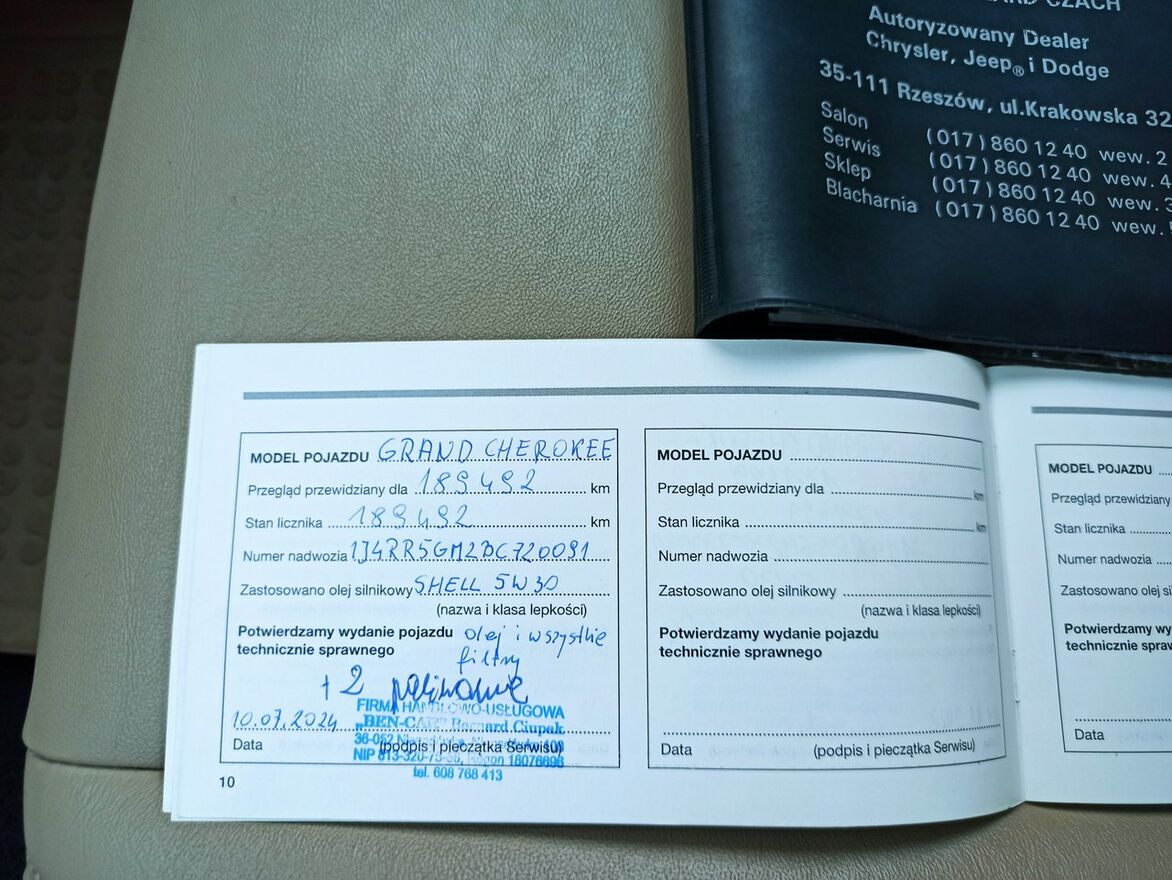 CZACH
Autoryzowany Dealer
Chrysler, Jeep® i Dodge
35-111 Rzeszów, ul.Krakowska 32
Salon (017) 860 12 40 wew. 2
Serwis (017) 860 12 40 wew. 4
Sklep (017) 860 12 40 wew. 3
Blacharnia (017) 860 12 40 wew.
MODEL POJAZDU GRAND CHEROKEE
Przegląd przewidziany dla 189492 km
Stan licznika 189492 km
Numer nadwozia 1J4RR5GM2BC720091
Zastosowano olej silnikowy SHELL 5W30
(nazwa i klasa lepkości)
Potwierdzamy wydanie pojazdu olej i wszystkie
technicznie sprawnego filtry
+ 2 paliwowe
FIRMA HANDLOWO-USŁUGOWA
"BEN-CAR" Bernard Ciupak
10.07.2024
36-052
Data (podpis i pieczątka Serwisu)
NIP 813-320- Regon 18076696
tel. 608 768 413
10
MODEL POJAZDU
Przegląd przewidziany dla km
Stan licznika km
Numer nadwozia
Zastosowano olej silnikowy
(nazwa i klasa lepkości)
Potwierdzamy wydanie pojazdu
technicznie sprawnego
Data (podpis i pieczątka Serwisu)
MODEL POJAZDU
Przegląd przewidziany
Stan licznika
Numer nadwozia
Zastosowano olej si
Potwierdzamy wy
technicznie spraw
Data